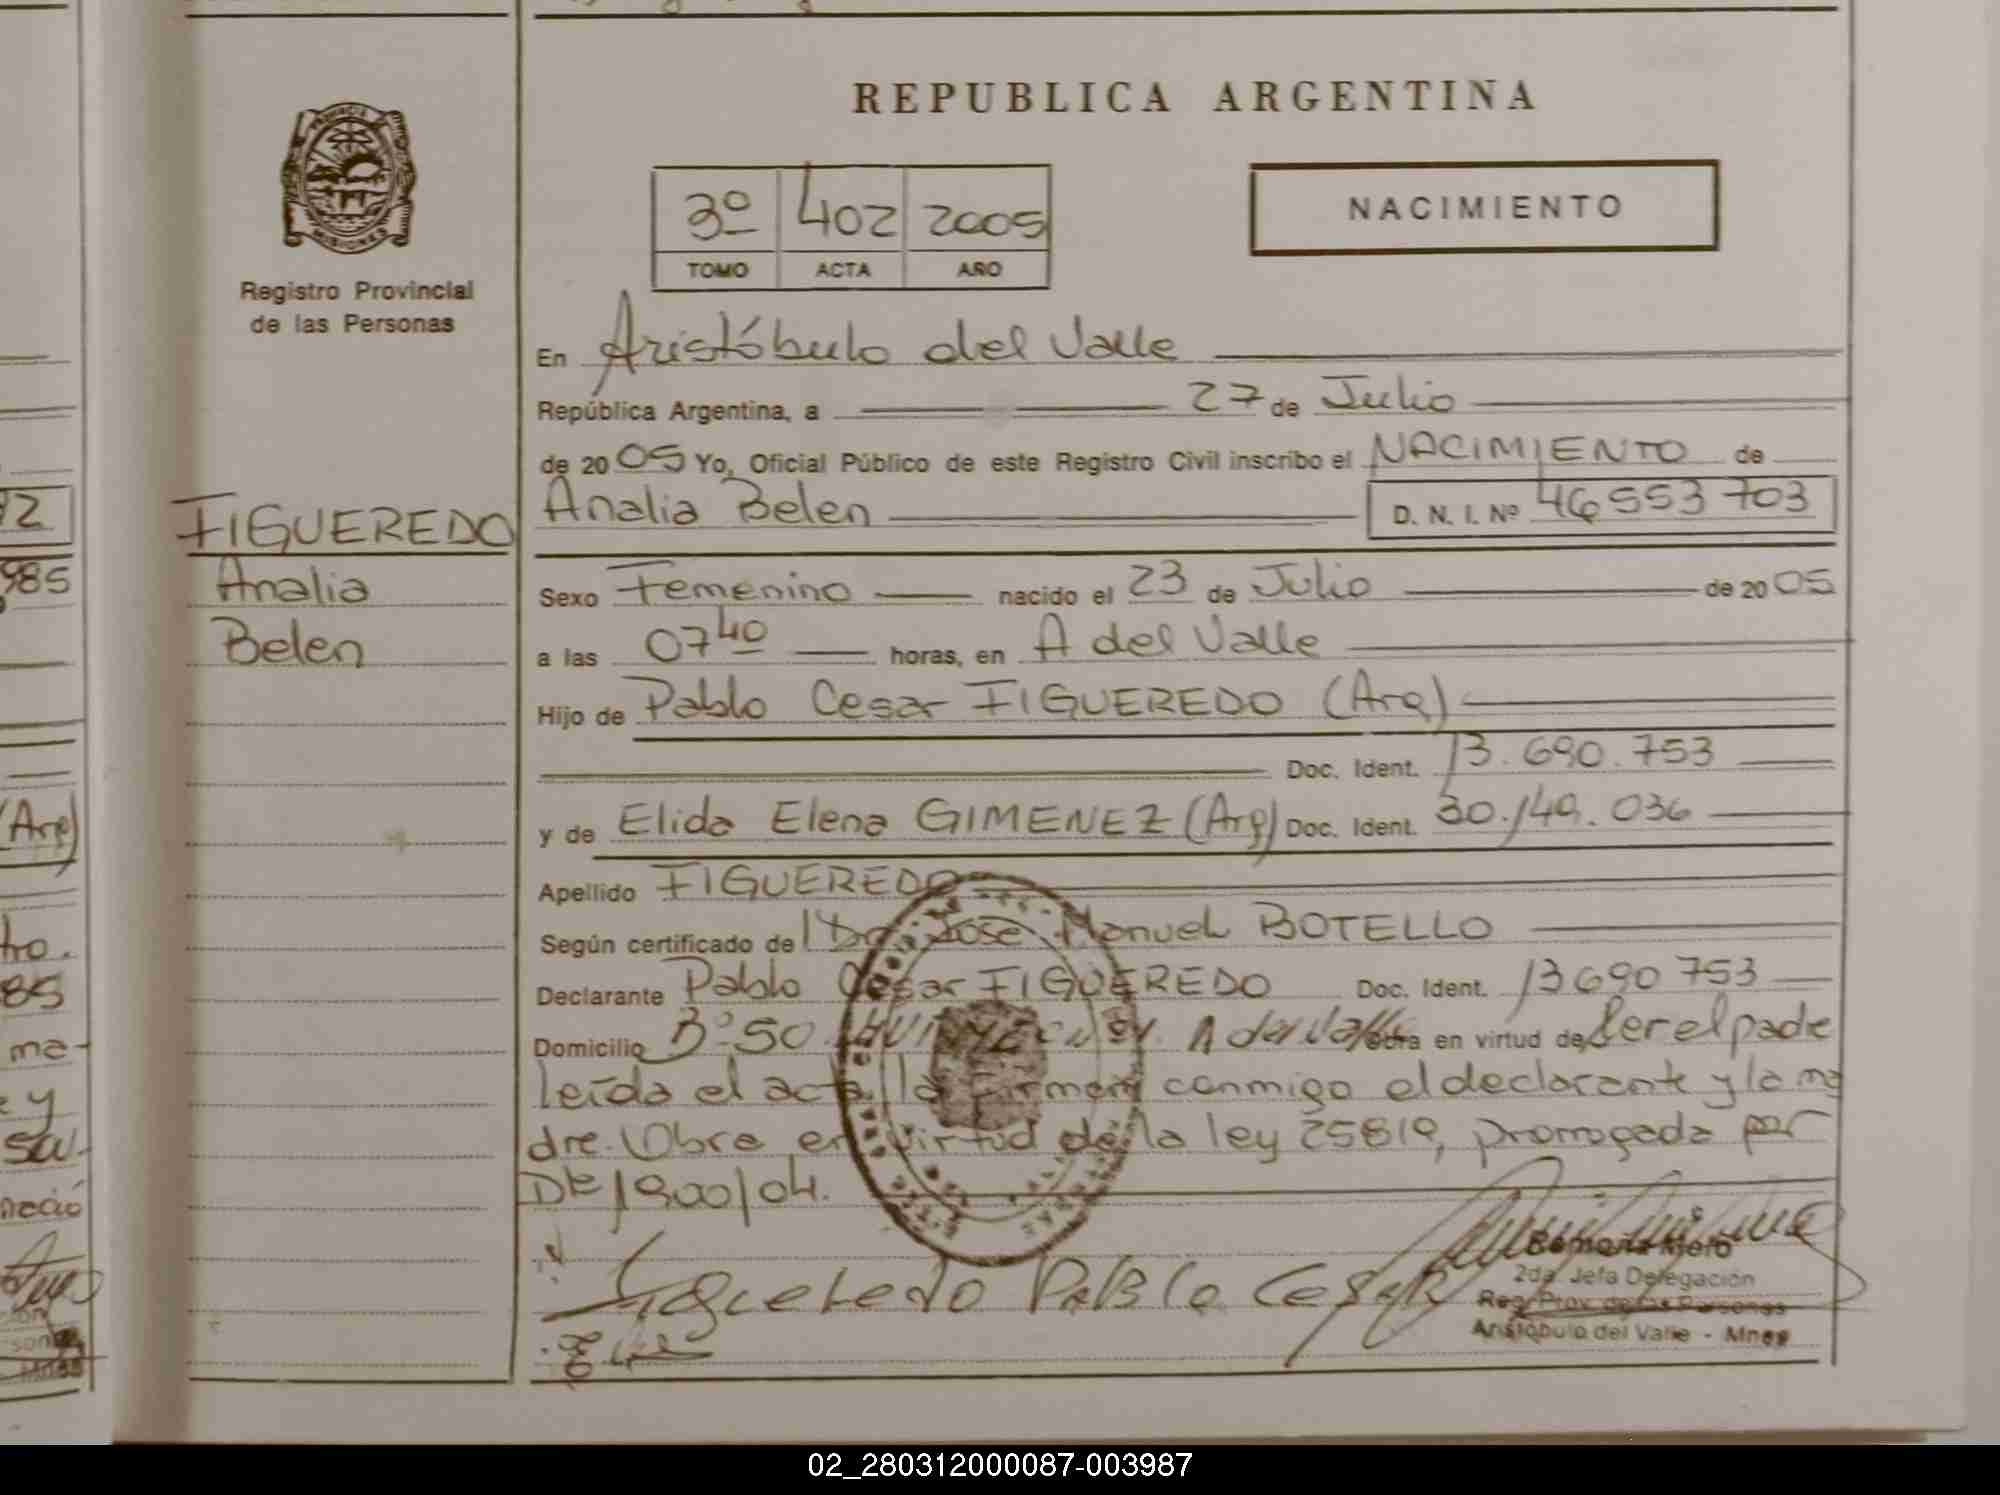 REPUBLICA ARGENTINA
PROVINCIA
MISIONES
Registro Provincial
de las Personas
3º 402 2005
TOMO ACTA AÑO
NACIMIENTO
En Aristóbulo del Valle
República Argentina, a 27 de Julio
de 2005 Yo, Oficial Público de este Registro Civil inscribo el NACIMIENTO de
Analia Belen D. N. I. Nº 46553703
FIGUEREDO
Analia
Belen
Sexo Femenino nacido el 23 de Julio de 2005
a las 07 40 horas, en A del Valle
Hijo de Pablo Cesar FIGUEREDO (Arg)
Doc. Ident. 13.690.753
y de Elida Elena GIMENEZ (Arg) Doc. Ident. 30.149.036
Apellido FIGUEREDO
Según certificado de Dr. Jose Manuel BOTELLO
Declarante Pablo Cesar FIGUEREDO Doc. Ident. 13690753
Domicilio Bº 50 A del Valle obra en virtud de Ser el padre
leída el acta la firman conmigo el declarante y la ma
dre. Obra en virtud de la ley 25819, prorrogada por
Dto 1900/04.
Figueredo Pablo Cesar
2da. Jefa Delegación
Reg. Prov. de las Personas
Aristóbulo del Valle - Mnes
12
985
(Arg)
85
ma-
y
02_280312000087-003987